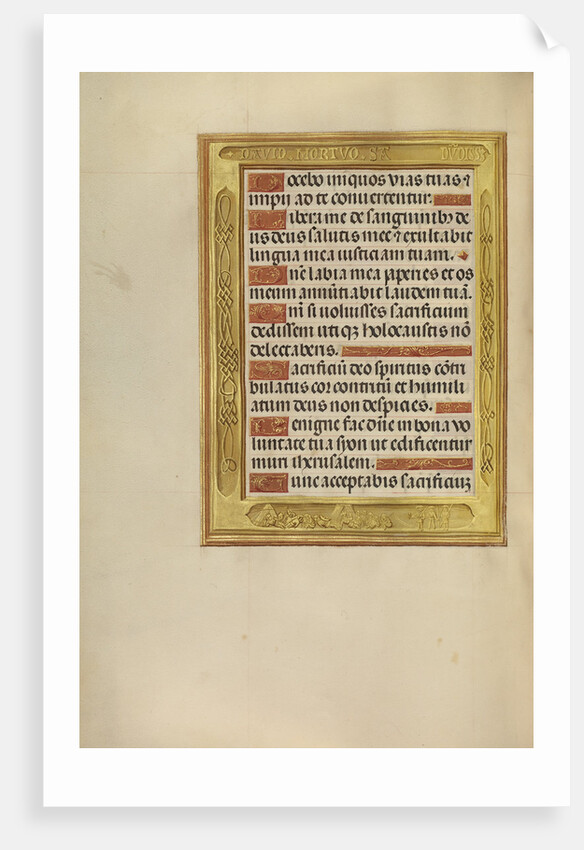 DAVID MORTVO SA
Docebo iniquos vias tuas ⁊
impii ad te conuertentur.
Libera me de sanguinibꝰ de
us deus salutis mee ⁊ exultabit
lingua mea iusticiam tuam.
Dñe labia mea aperies et os
meum annũtiabit laudem tuã.
Qm̃ si voluisses sacrificium
dedissem utiqꝫ holocaustis nõ
delectaberis.
Sacrificiũ deo spiritus cõtri
bulatus cor contritũ et humili
atum deus non despicies.
Benigne fac dñe in bona vo
luntate tua syon ut edificentur
muri iherusalem.
Tunc acceptabis sacrificiuꝫ